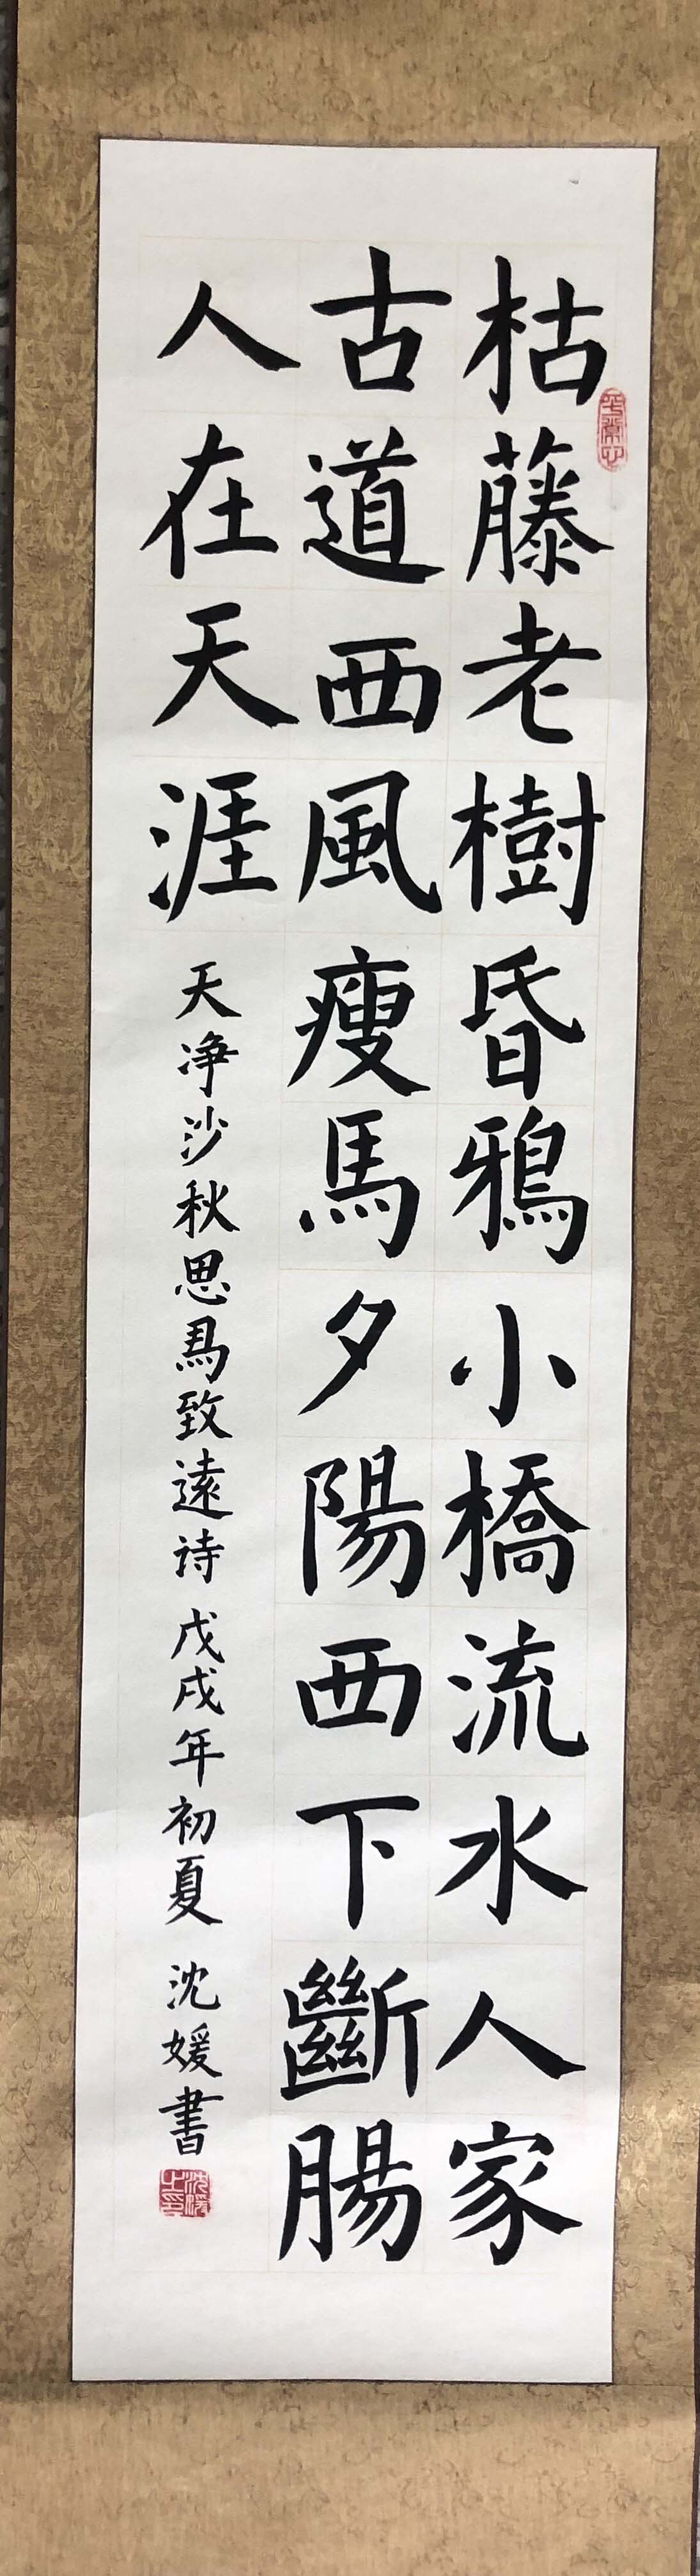 枯藤老樹昏鴉小橋流水人家
古道西風瘦馬夕陽西下斷腸
人在天涯
天净沙秋思馬致遠诗 戊戌年初夏 沈媛書
沈媛之印